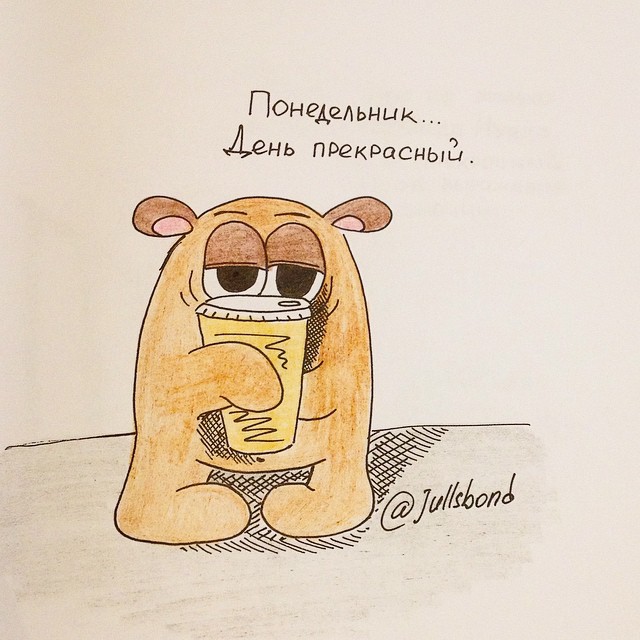 Понедельник...
День прекрасный.
@Jullsbond